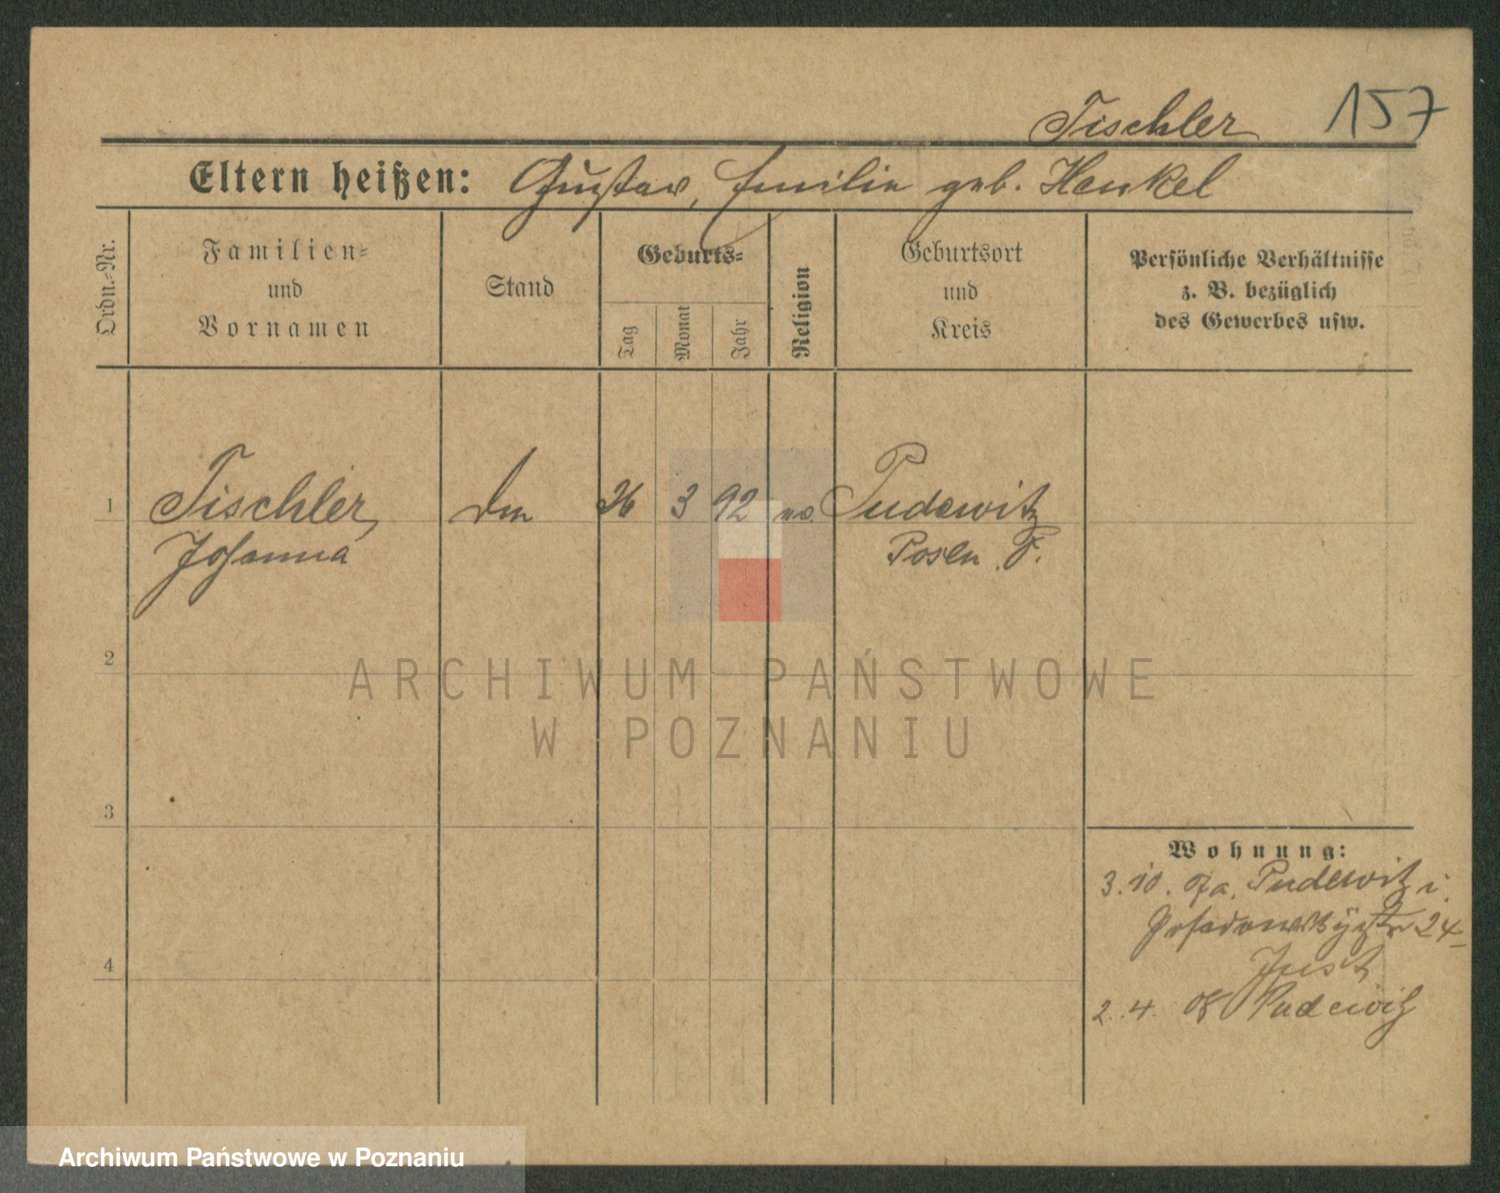 Tischler 157
Eltern heißen: Gustav, Emilie geb. Henkel
Ordn.-Nr.
Familien-
und
Vornamen
Stand
Geburts-
Tag
Monat
Jahr
Religion
Geburtsort
und
Kreis
Persönliche Verhältnisse
z. B. bezüglich
des Gewerbes usw.
1 Tischler, 26 3 92 Pudewitz
Johanna Posen O.
2
ARCHIWUM PAŃSTWOWE
W POZNANIU
3
Wohnung:
3. 10. 07 a. Pudewitz i.
24
Just
4
2. 4. 08 Pudewitz
Archiwum Państwowe w Poznaniu